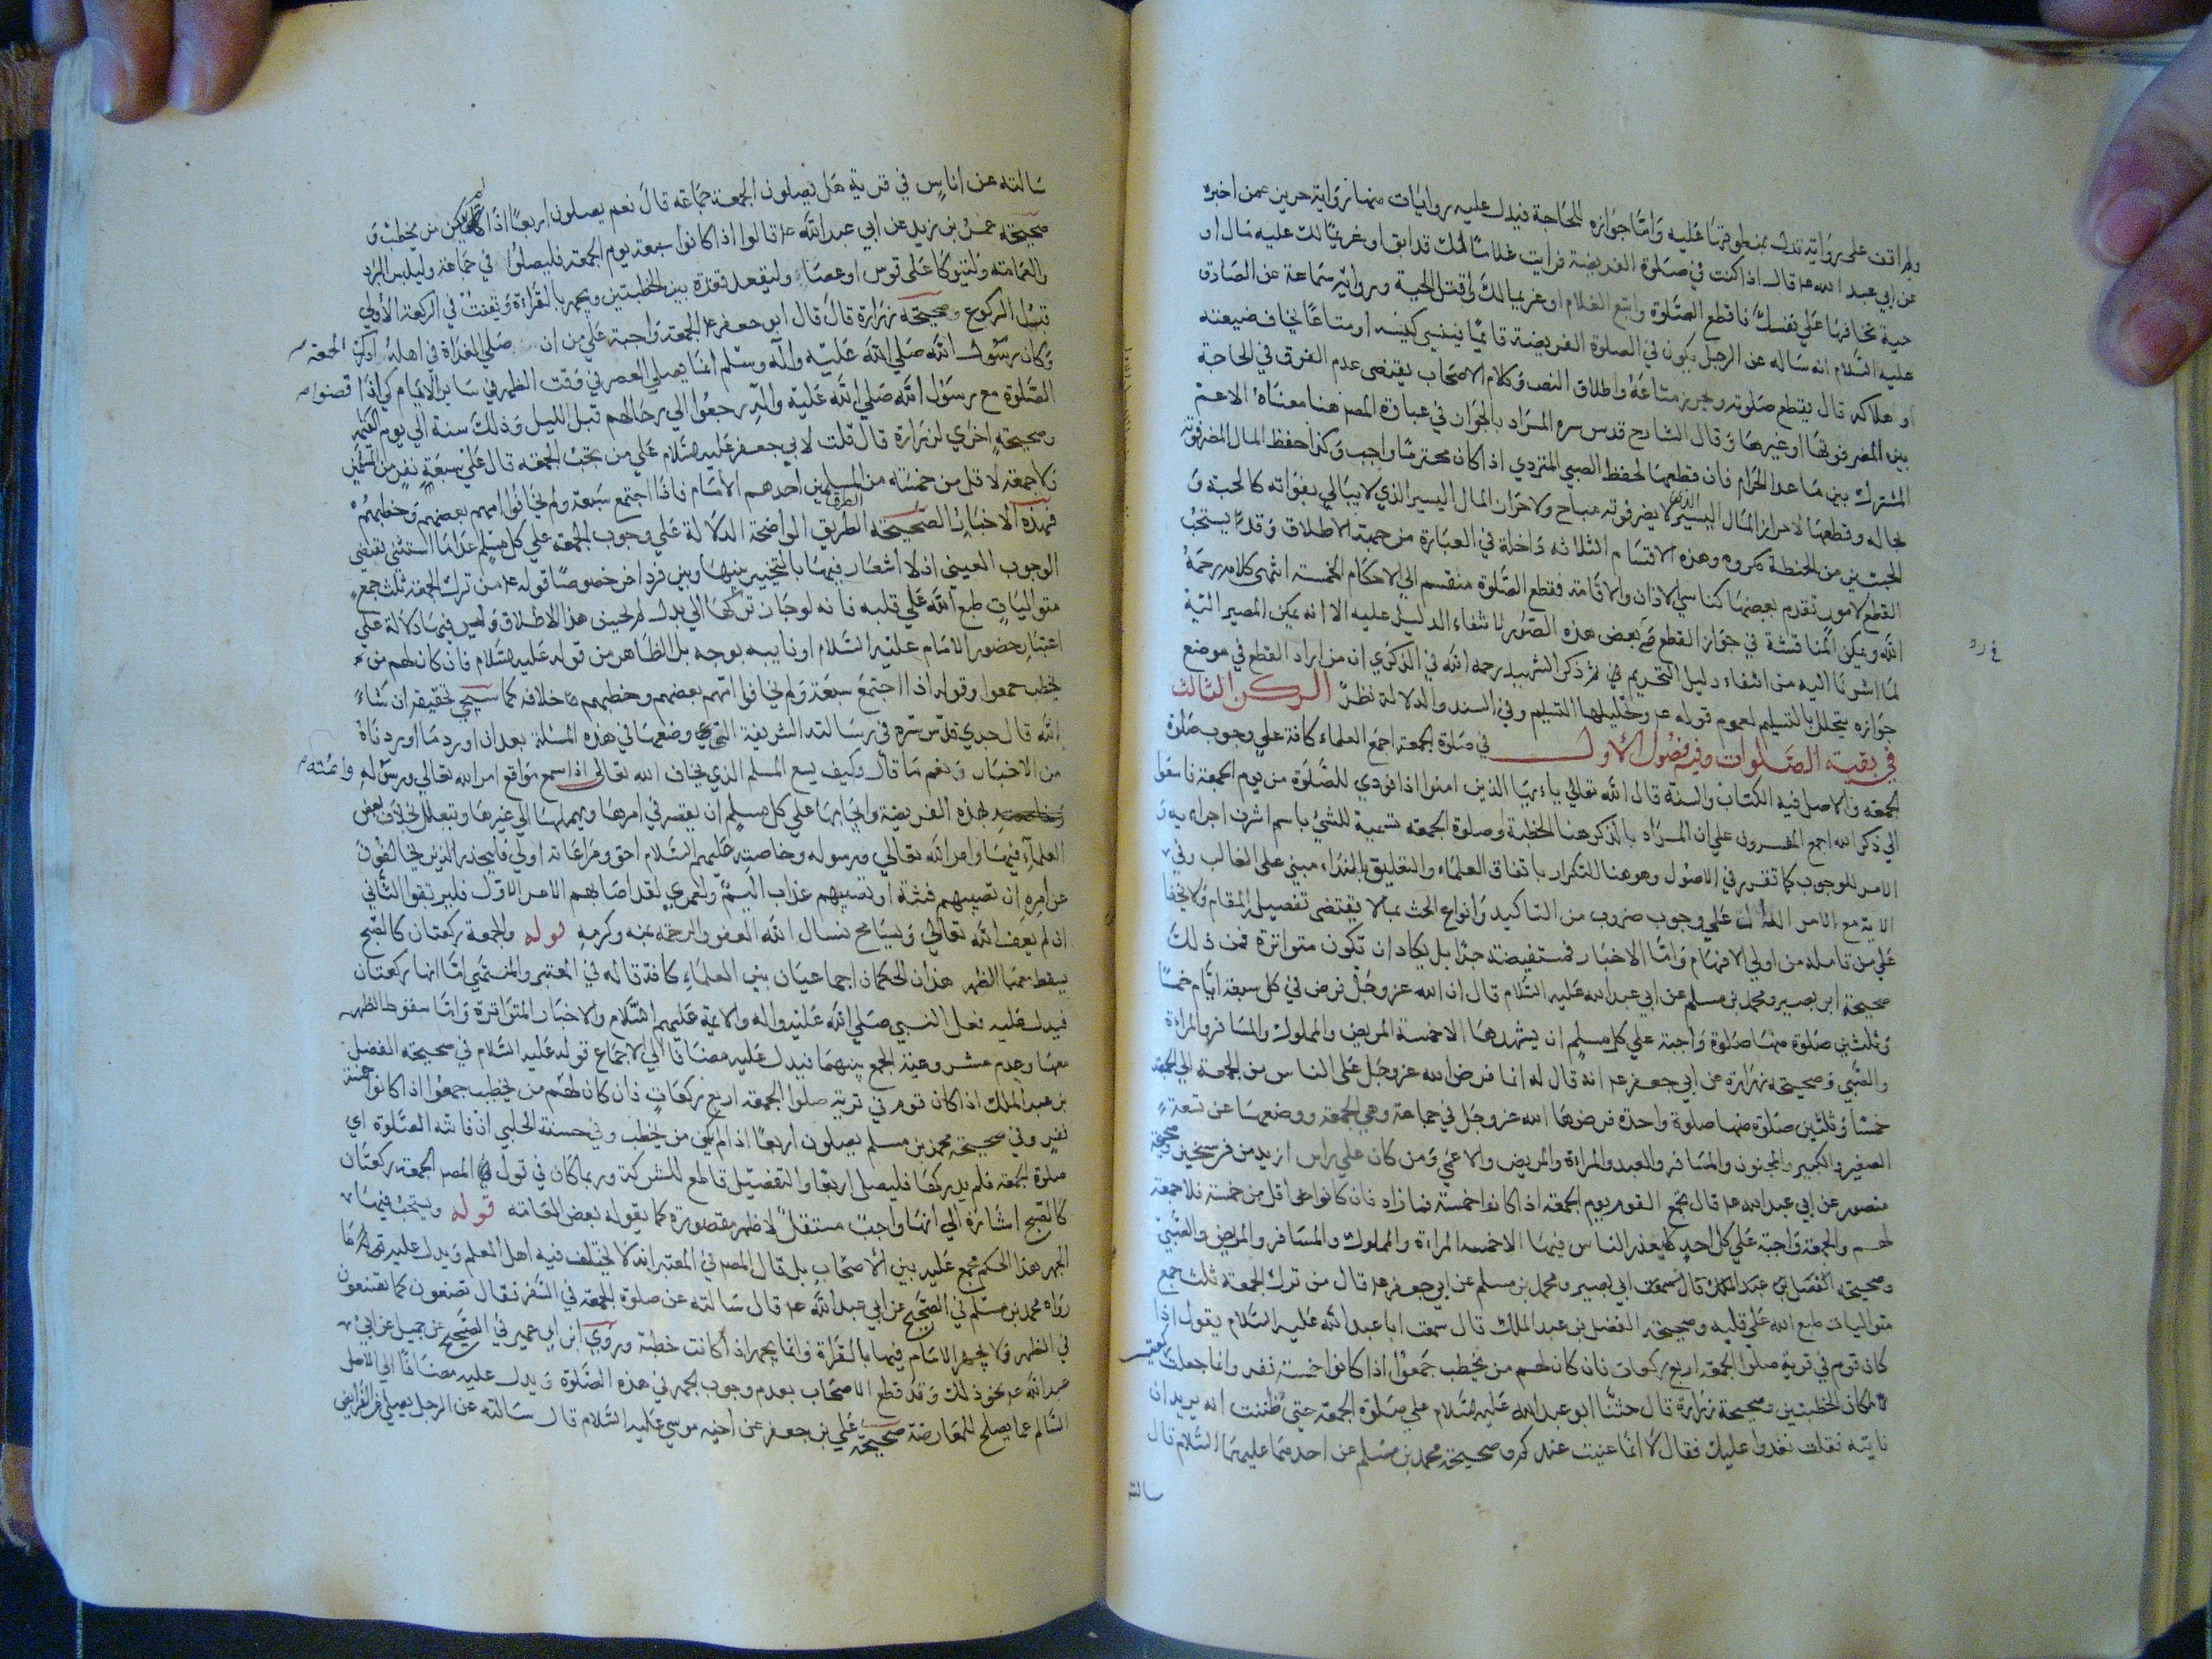 ولم اقف على رواية تدل بمنطوقها عليه واما جوازه للحاجة فيدل عليه روايات منها رواية حريز عمن اخبره
عن ابي عبد الله ع قال اذا كنت في صلوة الفريضة فرايت غلاما لك قد ابق او غريما لك عليه مال او
حية تخافها على نفسك فاقطع الصلوة واتبع الغلام او غريما لك واقتل الحية ورواية سماعة عن الصادق
عليه السلام انه ساله عن الرجل يكون في الصلوة الفريضة قائما فينسى كيسه او متاعا يخاف ضيعته
او هلاكه قال يقطع صلوته ويحرز متاعه واطلاق النص وكلام الاصحاب يقتضى عدم الفرق في الحاجة
بين المضر فوتها او غيرها وقال الشارح قدس سره المراد بالجواز في عبارة المصر هنا معناه الاعم
المشترك بين ما عدا الحرام فان قطعها لحفظ الصبي المتردي اذا كان محترما واجب وكذا حفظ المال المضر فوته
بحاله وقطعها لاحراز المال اليسير الذي لا يضر فوته مباح ولاحراز المال اليسير الذي لا يبالي بفواته كالحبة و
الحبتين من الحنطة مكروه وهذه الاقسام الثلاثه داخلة في العبارة من جهة الاطلاق وقد يستحب
القطع لامور تقدم بعضها كناسي الاذان والاقامة فقطع الصلوة منقسم الي الاحكام الخمسة انتهى كلامه رحمه
الله ويمكن المناقشة في جواز القطع في بعض هذه الصور لانتفاء الدليل عليه الا انه يمكن المصير اليه
لما اشرنا اليه من انتفاء دليل التحريم ثم ذكر الشهيد رحمه الله في الذكري ان من اراد القطع في موضع
جوازه يتحلل بالتسليم لعموم قوله ع وتحليلها التسليم وفي السند والدلالة نظر الركن الثالث
في بقية الصلوات وفيه فصول الاول في صلوة الجمعة اجمع العلماء كافة علي وجوب صلوة
الجمعه والاصل فيه الكتاب والسنة قال الله تعالي يا ايها الذين امنوا اذا نودي للصلوة من يوم الجمعة فاسعوا
الي ذكر الله اجمع المفسرون علي ان المراد بالذكر هنا الخطبة وصلوة الجمعه تسمية للشئ باسم اشرف اجزائه و
الامر للوجوب كما تقرر في الاصول وهو هنا للتكرار باتفاق العلماء والتعليق بالنداء مبني على الغالب وفي
الاية مع الامر الدال علي وجوب ضروب من التاكيد وانواع الحث بما لا يقتضى تفصيل المقام ولا يخفا
علي من تامله من اولي الافهام واما الاخبار فمستفيضة جدا بل يكاد ان تكون متواترة فمن ذلك
صحيحة ابي بصير ومحمد بن مسلم عن ابي عبد الله عليه السلام قال ان الله عز وجل فرض في كل سبعة ايام خمسا
وثلثين صلوة منها صلوة واجبة علي كل مسلم ان يشهدها الا خمسة المريض والمملوك والمسافر والمراة
والصبي وصحيحة زرارة عن ابي جعفر ع انه قال له انما فرض الله عز وجل علي الناس من الجمعة الي الجمعة
خمسا وثلثين صلوة منها صلوة واحدة فرضها الله عز وجل في جماعة وهي الجمعة ووضعها عن تسعة
الصغير والكبير والمجنون والمسافر والعبد والمراة والمريض والاعمي ومن كان علي راس ازيد من فرسخين وصحيحة
منصور عن ابي عبد الله ع قال يجمع القوم يوم الجمعة اذا كانوا خمسة فما زاد فان كانوا اقل من خمسة فلا جمعة
لهم والجمعة واجبة علي كل احد لا يعذر الناس فيها الا خمسة المراة والمملوك والمسافر والمريض والصبي
وصحيحة ابي بصير ومحمد بن مسلم عن ابي جعفر ع قال من ترك الجمعة ثلث جمع
متواليات طبع الله علي قلبه وصحيحة الفضل بن عبد الملك قال سمعت ابا عبد الله عليه السلام يقول اذا
كان قوم في قرية صلوا الجمعة اربع ركعات فان كان لهم من يخطب جمعوا اذا كانوا خمسة نفر وانما جعلت ركعتين
لمكان الخطبتين وصحيحة زرارة قال حثنا ابو عبد الله عليه السلام علي صلوة الجمعة حتي ظننت انه يريد ان
ناتيه فقلت نغدوا عليك فقال لا انما عنيت عندكم وصحيحة محمد بن مسلم عن احدهما عليهما السلام قال
سالته
سالته عن اناس في قرية هل يصلون الجمعة جماعة قال نعم يصلون اربعا اذا لم يكن من يخطب و
صحيحة عمر بن يزيد عن ابي عبد الله ع قالوا اذا كانوا سبعة يوم الجمعة فليصلوا في جماعة وليلبس البرد
والعمامة وليتوكا على قوس او عصا وليقعد قعدة بين الخطبتين ويجهر بالقراءة ويقنت في الركعة الاولي
قبل الركوع وصحيحة زرارة قال قال ابو جعفر ع الجمعة واجبة علي من ان صلي الغداة في اهله ادرك الجمعة
وكان رسول الله صلى الله عليه واله وسلم انما يصلي العصر في وقت الظهر في ساير الايام كي اذا قضوا
الصلوة مع رسول الله صلى الله عليه واله رجعوا الي رحالهم قبل الليل وذلك سنة الي يوم القيمة
وصحيحة اخري لزرارة قال قلت لابي جعفر عليه السلام علي من تجب الجمعه قال علي سبعة نفر من المسلمين
ولا جمعة لاقل من خمسة من المسلمين احدهم الامام فاذا اجتمع سبعة ولم يخافوا امهم بعضهم وخطبهم
فهذه الاخبار الصحيحة الطريق الواضحة الدلالة علي وجوب الجمعة علي كل مسلم عدا ما استثني يقتضي
الوجوب العيني اذ لا اشعار فيها بالتخيير بينها وبين فرد اخر خصوصا قوله ع من ترك الجمعة ثلث جمع
متواليات طبع الله علي قلبه فانه لو جاز تركها الي بدل لم يحسن هذا الاطلاق وليس فيها دلالة علي
اعتبار حضور الامام عليه السلام او نايبه بوجه بل الظاهر من قوله عليه السلام فان كان لهم من
يخطب جمعوا وقوله اذا اجتمع سبعة ولم يخافوا امهم بعضهم وخطبهم خلافه كما سيجئ تحقيقه ان شاء
الله قال جدي قدس سره في رسالته الشريفة التي وضعها في هذه المسئلة بعد ان اورد ما اوردناه
من الاخبار ونعم ما قال وكيف يسع المسلم الذي يخاف الله تعالي اذا سمع مواقع امر الله تعالي ورسوله وائمته
بهذه الفريضة وايجابها علي كل مسلم ان يقصر في امرها ويهملها الي غيرها ويتعلل بخلاف بعض
العلماء فيها وامر الله تعالي ورسوله وخاصته عليهم السلام احق ومراعاته اولي فليحذر الذين يخالفون
عن امره ان تصيبهم فتنة او تصيبهم عذاب اليم ولعمري لقد اصابهم الامر الاول فليرتقبوا الثاني
ان لم يعف الله تعالي ويسامح نسال الله العفو والرحمة بمنه وكرمه قوله والجمعة ركعتان كالصبح
يسقط معها الظهر هذان الحكمان اجماعيان بين العلماء كافة قاله في المعتبر والمنتهي اما انها ركعتان
فيدل عليه فعل النبي صلى الله عليه واله والايمة عليهم السلام والاخبار المتواترة واما سقوط الظهر
معها وعدم مشروعية الجمع بينهما فيدل عليه مضافا الي الاجماع قوله عليه السلام في صحيحة الفضل
بن عبد الملك اذا كان قوم في قرية صلوا الجمعة اربع ركعات فان كان لهم من يخطب جمعوا اذا كانوا خمسة
نفر وفي صحيحة محمد بن مسلم يصلون اربعا اذا لم يكن من يخطب وفي حسنة الحلبي ان فاتته الصلوة اي
صلوة الجمعة فلم يدركها فليصل اربعا والتفضيل قاطع للشركة وربما كان في قول المصر الجمعة ركعتان
كالصبح اشارة الي انها واجب مستقل لا ظهر مقصورة كما يقوله بعض العامة قوله ويستحب فيها
الجهر هذا الحكم مجمع عليه بين الاصحاب بل قال المصر في المعتبر انه لا يختلف فيه اهل العلم ويدل عليه ما
رواه محمد بن مسلم في الصحيح عن ابي عبد الله ع قال سالته عن صلوة الجمعة في السفر فقال تصنعون كما تصنعون
في الظهر ولا يجهر الامام فيها بالقراة وانما يجهر اذا كانت خطبة وروي ابن ابي عمير في الصحيح عن جميل عن ابي
عبد الله ع نحو ذلك وقد قطع الاصحاب بعدم وجوب الجهر في هذه الصلوة ويدل عليه مضافا الي الاصل
السالم عما يصلح للمعارضة صحيحة علي بن جعفر عن اخيه موسي عليه السلام قال سالته عن الرجل يصلي من الفرايض